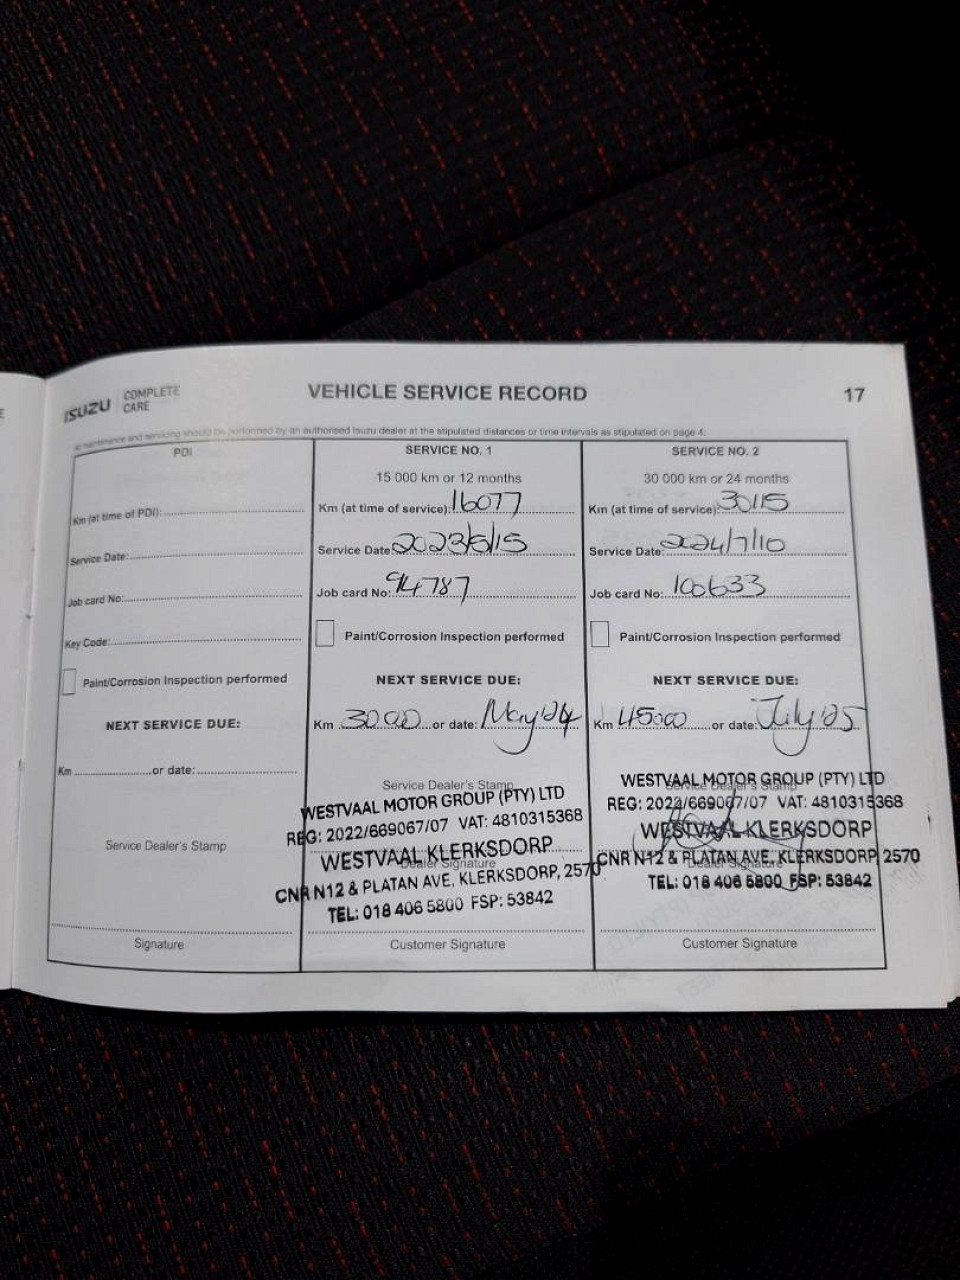 ISUZU COMPLETE CARE
VEHICLE SERVICE RECORD
17
maintenance and servicing should be performed by an authorised Isuzu dealer at the stipulated distances or time intervals as stipulated on page 4.
PDI
Km (at time of PDI):
Service Date:
Job card No:
Key Code:
Paint/Corrosion Inspection performed
NEXT SERVICE DUE:
Km or date:
Service Dealer's Stamp
Signature
SERVICE NO. 1
15 000 km or 12 months
Km (at time of service): 16077
Service Date: 2023/5/15
Job card No: 94787
Paint/Corrosion Inspection performed
NEXT SERVICE DUE:
Km 30000 or date: May '24
Service Dealer's Stamp
WESTVAAL MOTOR GROUP (PTY) LTD
REG: 2022/669067/07 VAT: 4810315368
WESTVAAL KLERKSDORP
Dealer Signature
CNR N12 & PLATAN AVE, KLERKSDORP, 2570
TEL: 018 406 5800 FSP: 53842
Customer Signature
SERVICE NO. 2
30 000 km or 24 months
Km (at time of service): 30115
Service Date: 2024/7/10
Job card No: 100633
Paint/Corrosion Inspection performed
NEXT SERVICE DUE:
Km 45000 or date: July '25
WESTVAAL MOTOR GROUP (PTY) LTD
Service Dealer's Stamp
REG: 2022/669067/07 VAT: 4810315368
WESTVAAL KLERKSDORP
CNR N12 & PLATAN AVE, KLERKSDORP, 2570
Dealer Signature
TEL: 018 406 5800 FSP: 53842
Customer Signature